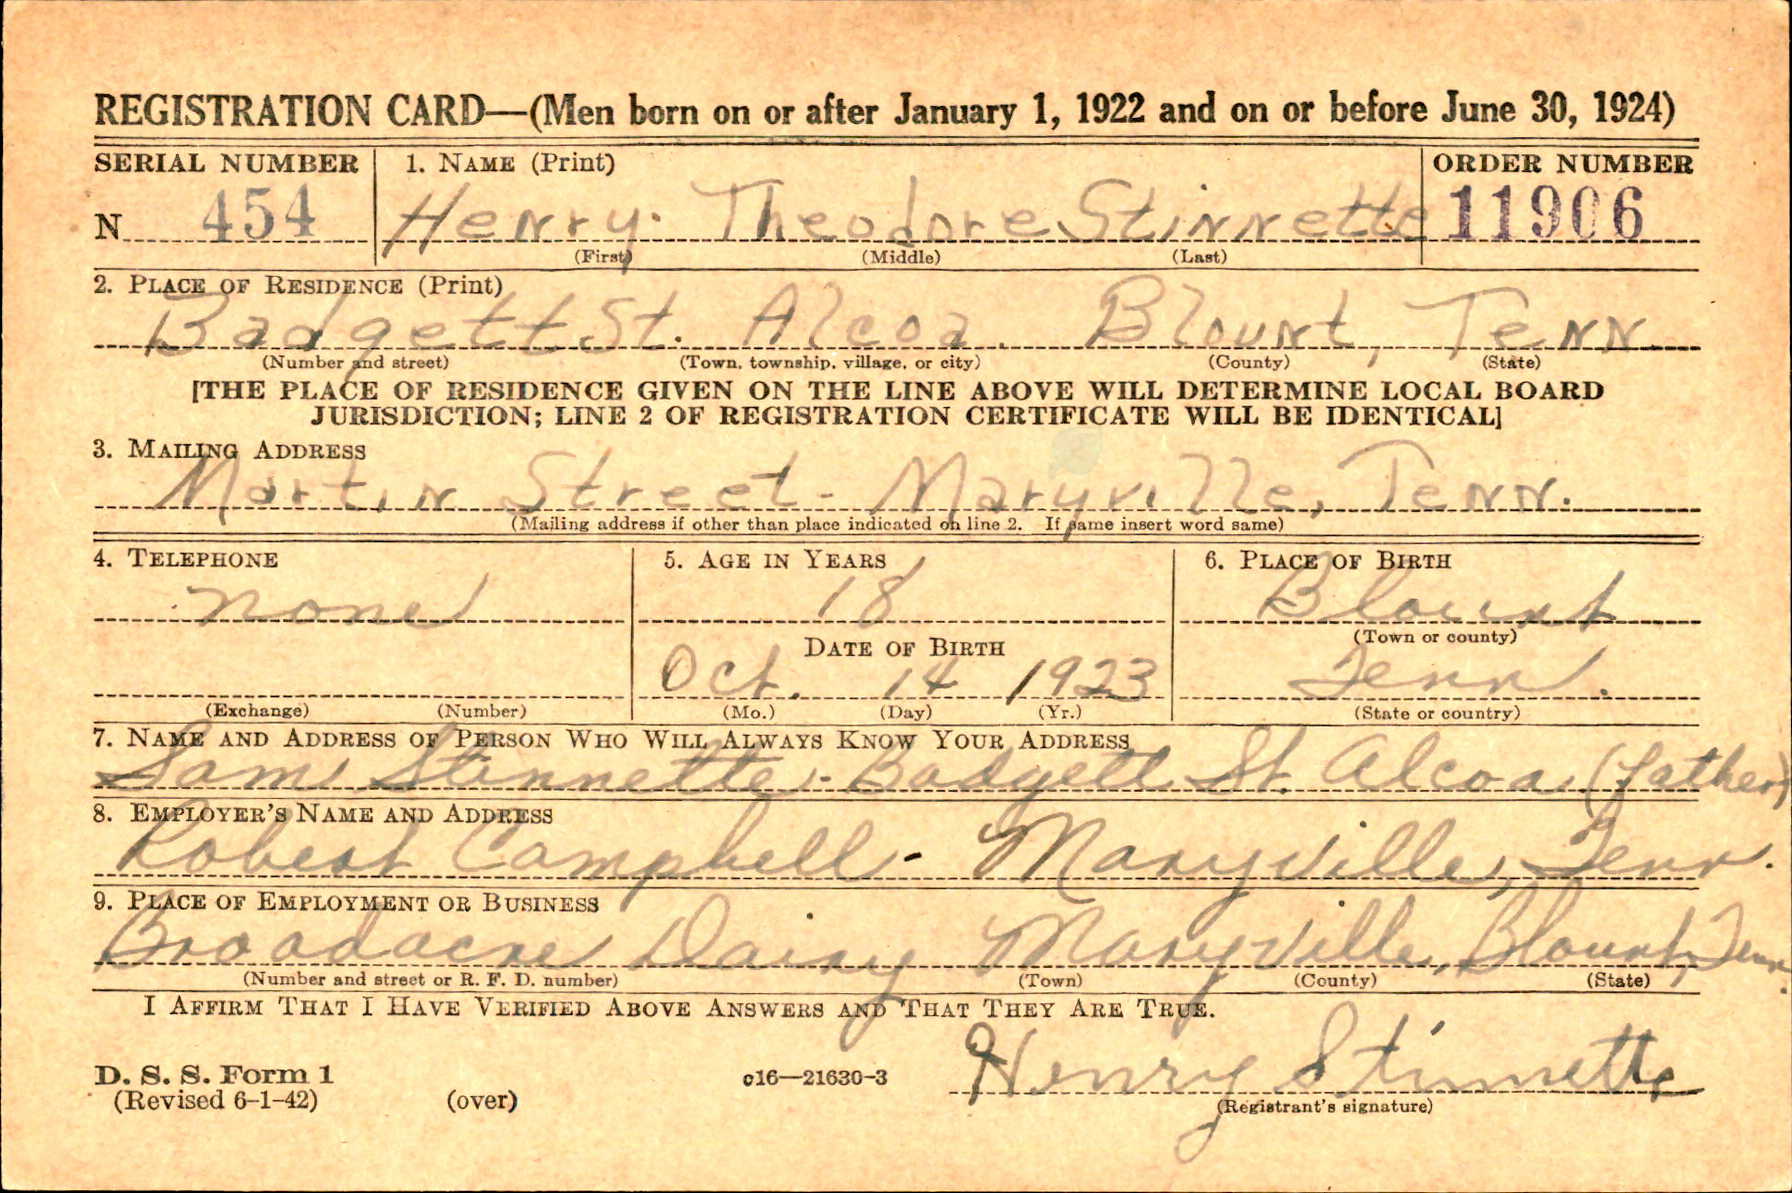 REGISTRATION CARD—(Men born on or after January 1, 1922 and on or before June 30, 1924)
SERIAL NUMBER 1. NAME (Print) ORDER NUMBER
N 454 Henry Theodore Stinnette 11906
(First) (Middle) (Last)
2. PLACE OF RESIDENCE (Print)
Badgett St. Alcoa. Blount, Tenn.
(Number and street) (Town, township, village, or city) (County) (State)
[THE PLACE OF RESIDENCE GIVEN ON THE LINE ABOVE WILL DETERMINE LOCAL BOARD
JURISDICTION; LINE 2 OF REGISTRATION CERTIFICATE WILL BE IDENTICAL]
3. MAILING ADDRESS
Martin Street - Maryville, Tenn.
(Mailing address if other than place indicated on line 2. If same insert word same)
4. TELEPHONE 5. AGE IN YEARS 6. PLACE OF BIRTH
none 18 Blount
(Town or county)
DATE OF BIRTH
Oct. 14 1923 Tenn.
(Exchange) (Number) (Mo.) (Day) (Yr.) (State or country)
7. NAME AND ADDRESS OF PERSON WHO WILL ALWAYS KNOW YOUR ADDRESS
Sam Stinnette - Badgett St. Alcoa (father)
8. EMPLOYER'S NAME AND ADDRESS
Robert Campbell - Maryville, Tenn.
9. PLACE OF EMPLOYMENT OR BUSINESS
Broadacre Dairy Maryville, Blount, Tenn.
(Number and street or R. F. D. number) (Town) (County) (State)
I AFFIRM THAT I HAVE VERIFIED ABOVE ANSWERS AND THAT THEY ARE TRUE.
D. S. S. Form 1
(Revised 6-1-42) (over) c16—21630-3 Henry Stinnette
(Registrant's signature)